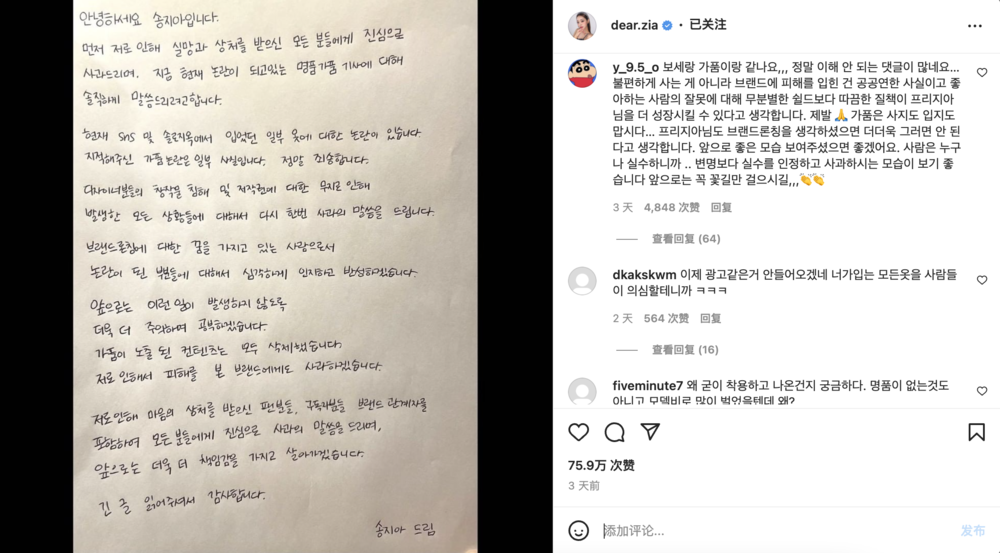 안녕하세요 송지아입니다.
먼저 저로 인해 실망과 상처를 받으신 모든 분들에게 진심으로
사과드리며, 지금 현재 논란이 되고있는 명품가품 기사에 대해
솔직하게 말씀드리려고합니다.
현재 sns 및 솔로지옥에서 입었던 일부 옷에 대한 논란이 있습니다
지적해주신 가품논란은 일부 사실입니다. 정말 죄송합니다.
디자이너분들의 창작물 침해 및 저작권에 대한 무지로 인해
발생한 모든 상황들에 대해서 다시 한번 사과의 말씀을 드립니다.
브랜드론칭에 대한 꿈을 가지고 있는 사람으로서
논란이 된 부분들에 대해서 심각하게 인지하고 반성하겠습니다.
앞으로는 이런 일이 발생하지 않도록
더욱 더 주의하며 공부하겠습니다.
가품이 노출 된 컨텐츠는 모두 삭제했습니다.
저로 인해서 피해를 본 브랜드에게도 사과하겠습니다.
저로인해 마음의 상처를 받으신 팬분들, 구독자분들 브랜드 관계자를
포함하여 모든분들에게 진심으로 사과의 말씀을 드리며,
앞으로는 더욱 더 책임감을 가지고 살아가겠습니다.
긴 글 읽어주셔서 감사합니다.
송지아 드림
dear.zia • 已关注
y_9.5_o 보세랑 가품이랑 같나요,,, 정말 이해 안 되는 댓글이 많네요...
불편하게 사는 게 아니라 브랜드에 피해를 입힌 건 공공연한 사실이고 좋
아하는 사람의 잘못에 대해 무분별한 쉴드보다 따끔한 질책이 프리지아
님을 더 성장시킬 수 있다고 생각합니다. 제발 🙏 가품은 사지도 입지도
맙시다... 프리지아님도 브랜드론칭을 생각하셨으면 더더욱 그러면 안 된
다고 생각합니다. 앞으로 좋은 모습 보여주셨으면 좋겠어요. 사람은 누구
나 실수하니까 .. 변명보다 실수를 인정하고 사과하시는 모습이 보기 좋
습니다 앞으로는 꼭 꽃길만 걸으시길,,,👏👏
3 天 4,848 次赞 回复
查看回复 (64)
dkakskwm 이제 광고같은거 안들어오겠네 너가입는 모든옷을 사람들
이 의심할테니까 ㅋㅋㅋ
2 天 564 次赞 回复
查看回复 (16)
fiveminute7 왜 굳이 착용하고 나온건지 궁금하다. 명품이 없는것도
아니고 모델비로 많이 벌었을텐데 왜?
75.9万 次赞
3 天前
添加评论...
发布